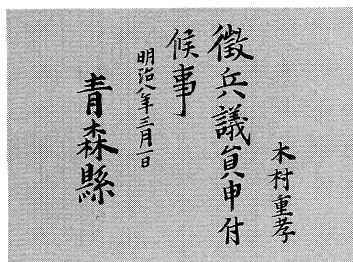 木村重孝
徴兵議員申付
候事
明治八年三月一日
青森縣